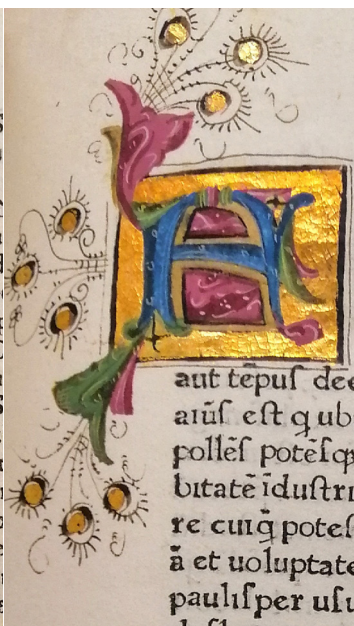 A
aut tēpuſ dee
aiūſ eſt q ub
pollēſ potēſq
bitatē īduſtri
re cuiq̄ poteſ
ā et uoluptate
pauliſper uſu